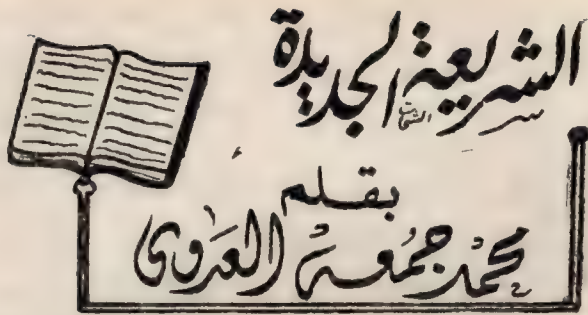 الشريعة الجديدة
بقلم
محمد جمعه العدوى